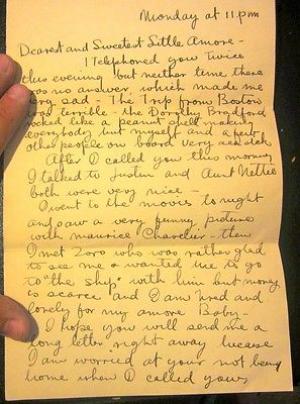 Monday at 11 pm
Dearest and Sweetest Little Amore -
I Telephoned you Twice
this evening but neither time there
was no answer which made me
very sad - The Trip from Boston
was terrible - the Dorothy Bradford
rocked like a peanut shell making
everybody but myself and a few
other people on board very sea sick
After I called you this morning
I talked to Justin and Aunt Nettie
both were very nice -
I went to the movies to night
and saw a very funny picture
with Maurice Chavelier - then
I met Zoro who was rather glad
to see me & wanted me to go
to "the ship" with him but money
is scarce and I am tired and
lonely for my amore Baby -
I hope you will send me a
long letter right away because
I am worried at your not being
home when I called you